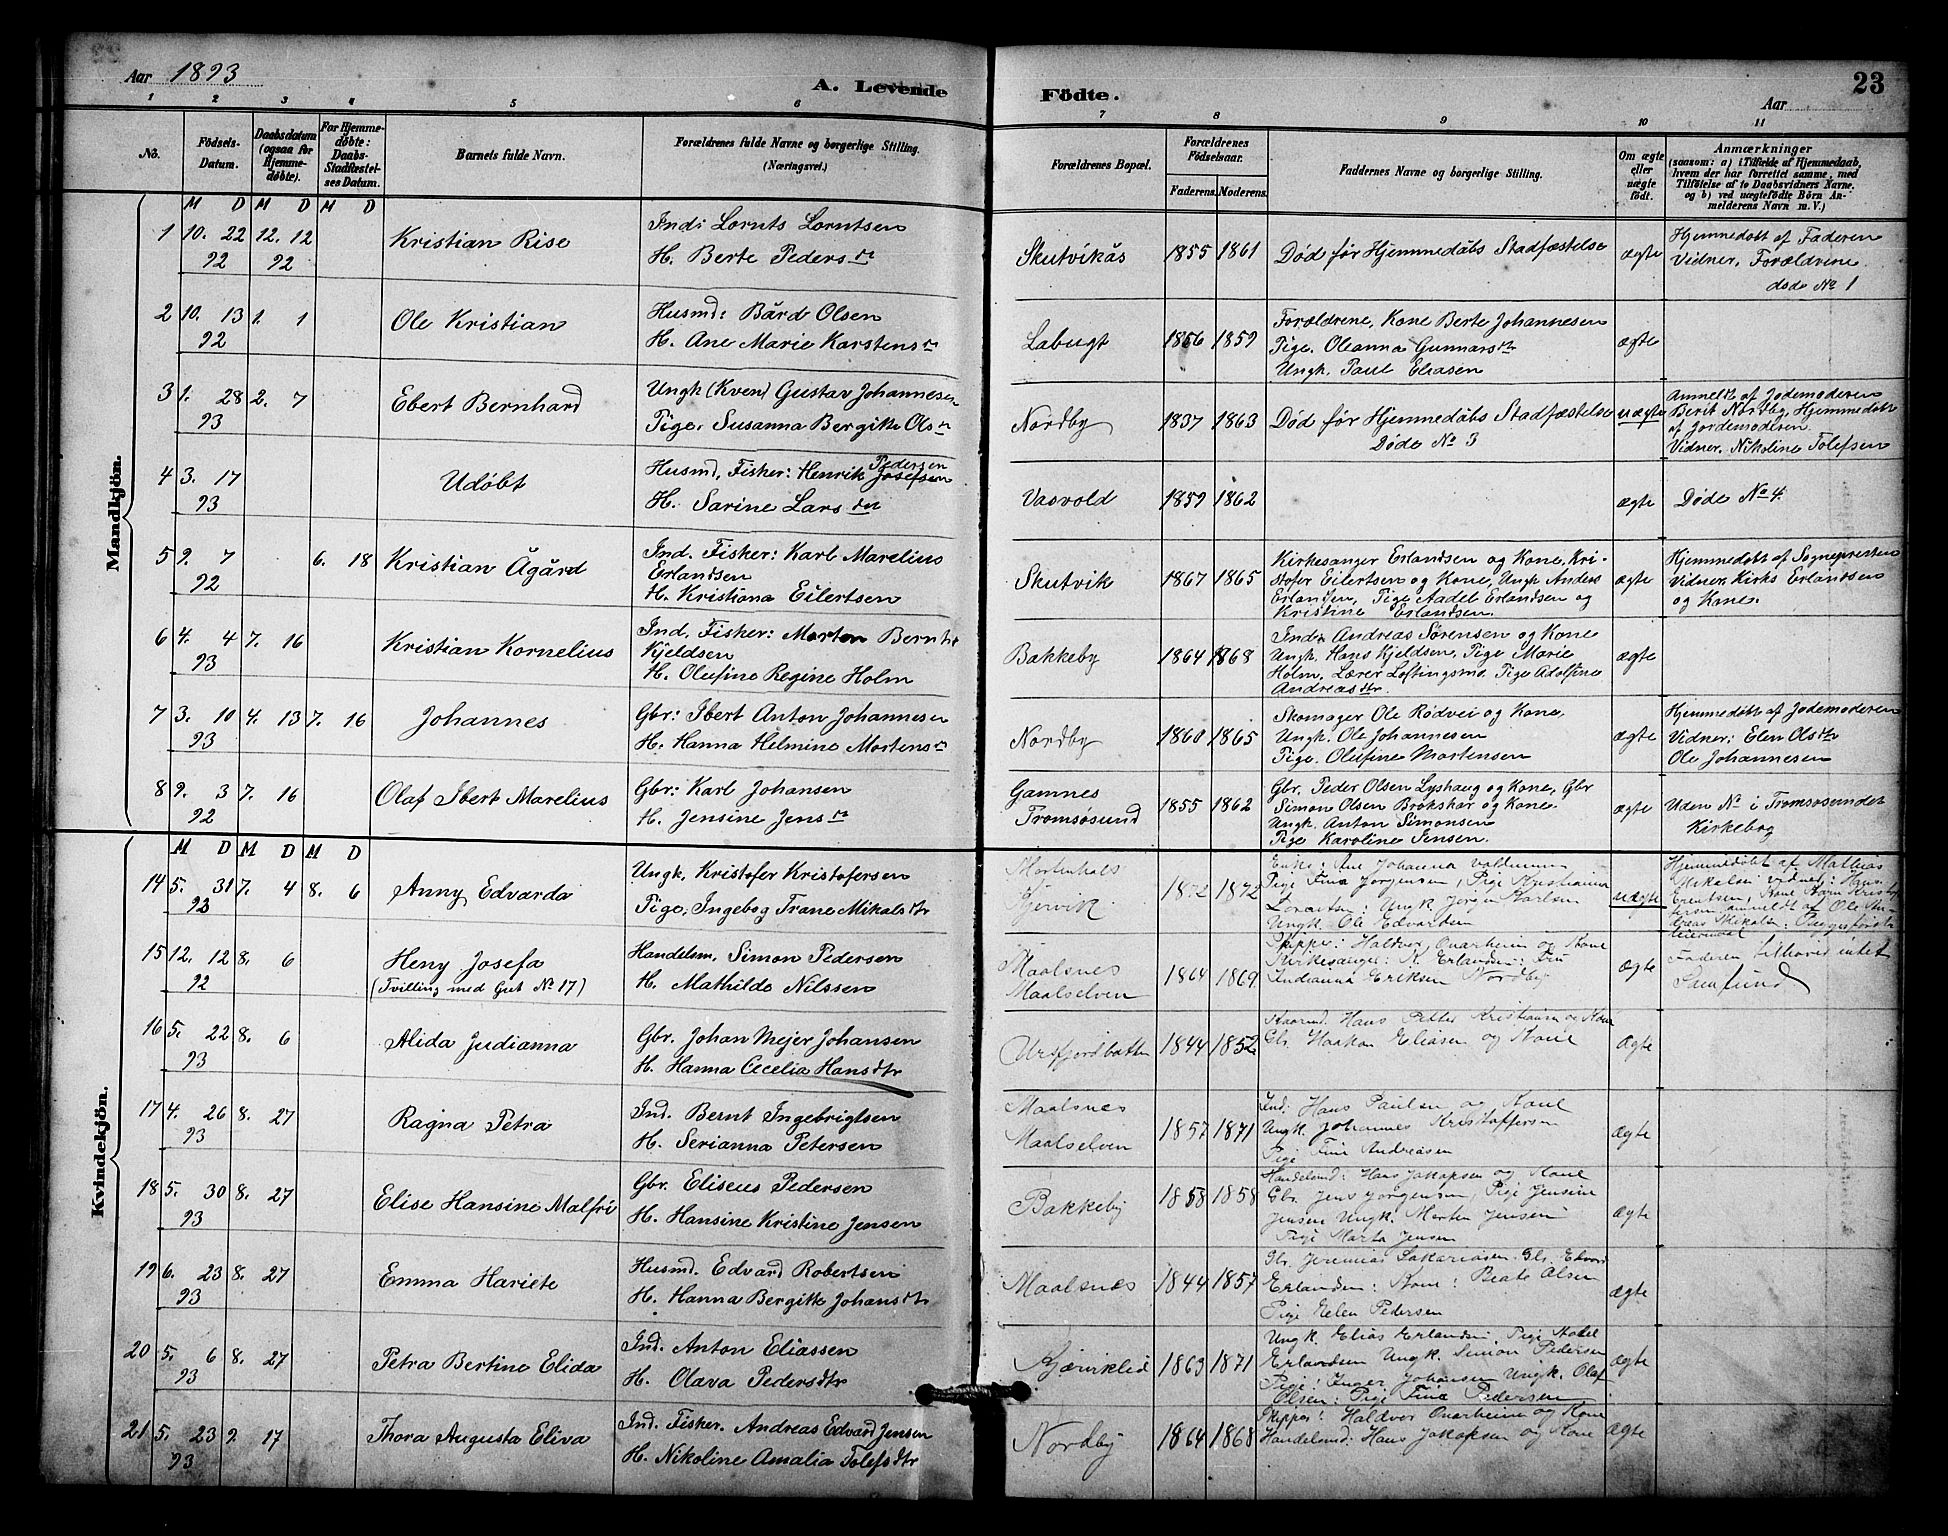 Aar 1893
A. Levende Fødte.
Aar
23
1 2 3 4 5 6 7 8 9 10 11
No.
Fødsels-Datum.
Daabsdatum (ogsaa for Hjemmedøbte).
For Hjemmedøbte: Daabs-Stadfæstelses Datum.
Barnets fulde Navn.
Forældrenes fulde Navne og borgerlige Stilling. (Næringsvei.)
Forældrenes Bopæl.
Forældrenes Fødselsaar.
Faderens. Moderens.
Faddernes Navne og borgerlige Stilling.
Om ægte eller uægte født.
Anmærkninger (saasom: a) i Tilfælde af Hjemmedaab, hvem der har forrettet samme, med Tilføielse af to Daabsvidners Navne, og b) ved uægtefødte Børn Anmelderens Navn m. V.)
Mandkjön.
M D M D M D
1 10. 22 92 12. 12 92 Kristian Rise
Ind: Lornts Lorntsen
H. Berte Pedersdtr
Skutvikås 1855 1861 Død før Hjemmedåbs Stadfæstelse ægte
Hjemmedøbt af Faderen
Vidner, Forældrene
døde No 1
2 10. 13 92 1. 1 Ole Kristian
Husmd: Bård Olsen
H. Ane Marie Karstensdtr
Labugt 1856 1859
Forældrene, Kone Berte Johannesen
Pige. Oleanna Gunnarsdtr
Ungk. Paul Eliasen
ægte
3 1. 28 93 2. 7 Ebert Bernhard
Ungk (Kven) Gustav Johannesen
Pige. Susanna Bergitte Olsdtr
Nordby 1837 1863 Død før Hjemmedåbs Stadfæstelse
Døde No 3
uægte
Anmeldt af Jodemoderen
Berit Nordby, Hjemmedøbt
af Jordemoderen.
Vidner. Nikoline Tolefsen
4 3. 17 93 Udøbt
Husmd, Fisker: Henrik Pedersen Josefsen
H. Sarine Larsdtr
Vasvold 1859 1862 ægte Døde No 4.
5 9. 7 92 6. 18 Kristian Ågård
Ind. Fisker: Karl Marelius
Erlandsen
H. Kristiana Eilertsen
Skutvik 1867 1865
Kirkesanger Erlandsen og Kone, Kri-
stofer Eilertsen og Kone, Ungk Anders
Erlandsen, Pige Aadel Erlandsen og
Kristine Erlandsen.
ægte
Hjemmedøbt af Sognepresten
Vidner, Kirks Erlandsen
og Kone.
6 4. 4 93 7. 16 Kristian Kornelius
Ind, Fisker: Morton Bernh.
Kjeldsen
H. Olufine Regine Holm
Bakkeby 1864 1868
Ind: Andreas Sørensen og Kone
Ungk. Hans Kjeldsen, Pige Marie
Holm, Lærer Loftingsmo, Pige Adolfine
Andreasdtr.
ægte
7 3. 10 93 4. 13 7. 16 Johannes
Gbr: Ibert Anton Johannesen
H. Hanna Helmine Mortensdtr
Nordby 1860 1865
Skomager Ole Rødvei og Kone,
Ungk. Ole Johannesen
Pige. Olufine Mortensen
ægte
Hjemmedøbt af Jodemoderen
Vidner: Elen Olsdtr
Ole Johannesen
8 9. 3 92 7. 16 Olaf Ibert Marelius
Gbr: Karl Johansen
H. Jensine Jensdtr
Gamnes
Tromsøsund
1855 1862
Gbr. Peder Olsen Lyshaug og Kone, Gbr
Simon Olsen Brokskar og Kone.
Ungk. Anton Simonsen
Pige Karoline Jensen.
ægte
Uden No i Tromsøsundet
Kirkebog
Kvindekjön.
M D M D M D
14 5. 31 93 7. 4 8. 6 Anny Edvarda
Ungk, Kristofer Kristofersen
Pige, Ingebog Trane Mikalsdtr
Mortenhals
Kjervik
1872
Enke: Ane Johanna
Pige Fina Jørgensen, Pige Kristianna
Ungk Jørgen Karlsen
Ungk. Ole Edvardsen
uægte
Hjemmedøbt af Mathias
Mikalsen vidner: Hans
15 12. 12 92 8. 6 Heny Josefa
(Tvilling med Gut No 17)
Handelsm, Simon Pedersen
H. Mathilde Nilssen
Maalsnes
Maalselven
1864 1869
Skipper: Haldvor Ovarheim og Kone
Kirkesanger: K. Erlandsen: Fru
Indianna Eriksen Nordby
ægte
Faderen tilhører intet
Samfund
16 5. 22 93 8. 6 Alida Judianna
Gbr. Johan Mejer Johansen
H. Hanna Cecelia Hansdtr
Ursfjordbotten 1844 1852
Hans Petter Kristiansen og Kone
Gbr. Haakon Eliasen og Kone
ægte
17 4. 26 93 8. 27 Ragna Petra
Ind. Bernt Ingebrigtsen
H. Serianna Petersen
Maalsnes
Maalselven
1857 1871
Ind: Hans Paulsen og Kone
Ungk. Johannes Kristoffersen
Pige Fine Andreasen
ægte
18 5. 30 93 8. 27 Elise Hansine Malfri
Gbr. Eliseus Pedersen
H. Hansine Kristine Jensen
Bakkeby 1858 1858
Handelsmd: Hans Jakopsen og Kone
Gbr. Jens Jørgensen, Pige Jensine
Jensen Ungk. Morten Jensen
Pige Marta Jensen
ægte
19 6. 23 93 8. 27 Emma Hariete
Husmd. Edvard Robertsen
H. Hanna Bergitte Johansdtr
Maalsnes 1844 1857
Gbr. Jeremias Sakariasen. Gbr. Edvard
Erlandsen: Kone: Beate Olsen
Pige Helen Pedersen
ægte
20 5. 6 93 8. 27 Petra Bertine Elida
Ind. Anton Eliassen
H. Olava Pedersdtr
Kjærviklid 1863 1871
Ungk. Elias Erlandsen. Pige Aadel
Erlandsen Ungk. Simon Pedersen
Pige: Inger Johansen Ungk. Olaf
Olsen: Pige Fina Pedersen
ægte
21 5. 23 93 9. 17 Thora Augusta Eliva
Ind. Fisker. Andreas Edvard Jensen
H. Nikoline Amalia Tolefsdtr
Nordby 1864 1868
Skipper: Haldvor Ovarheim og Kone
Handelsmd: Hans Jakopsen og Kone
ægte